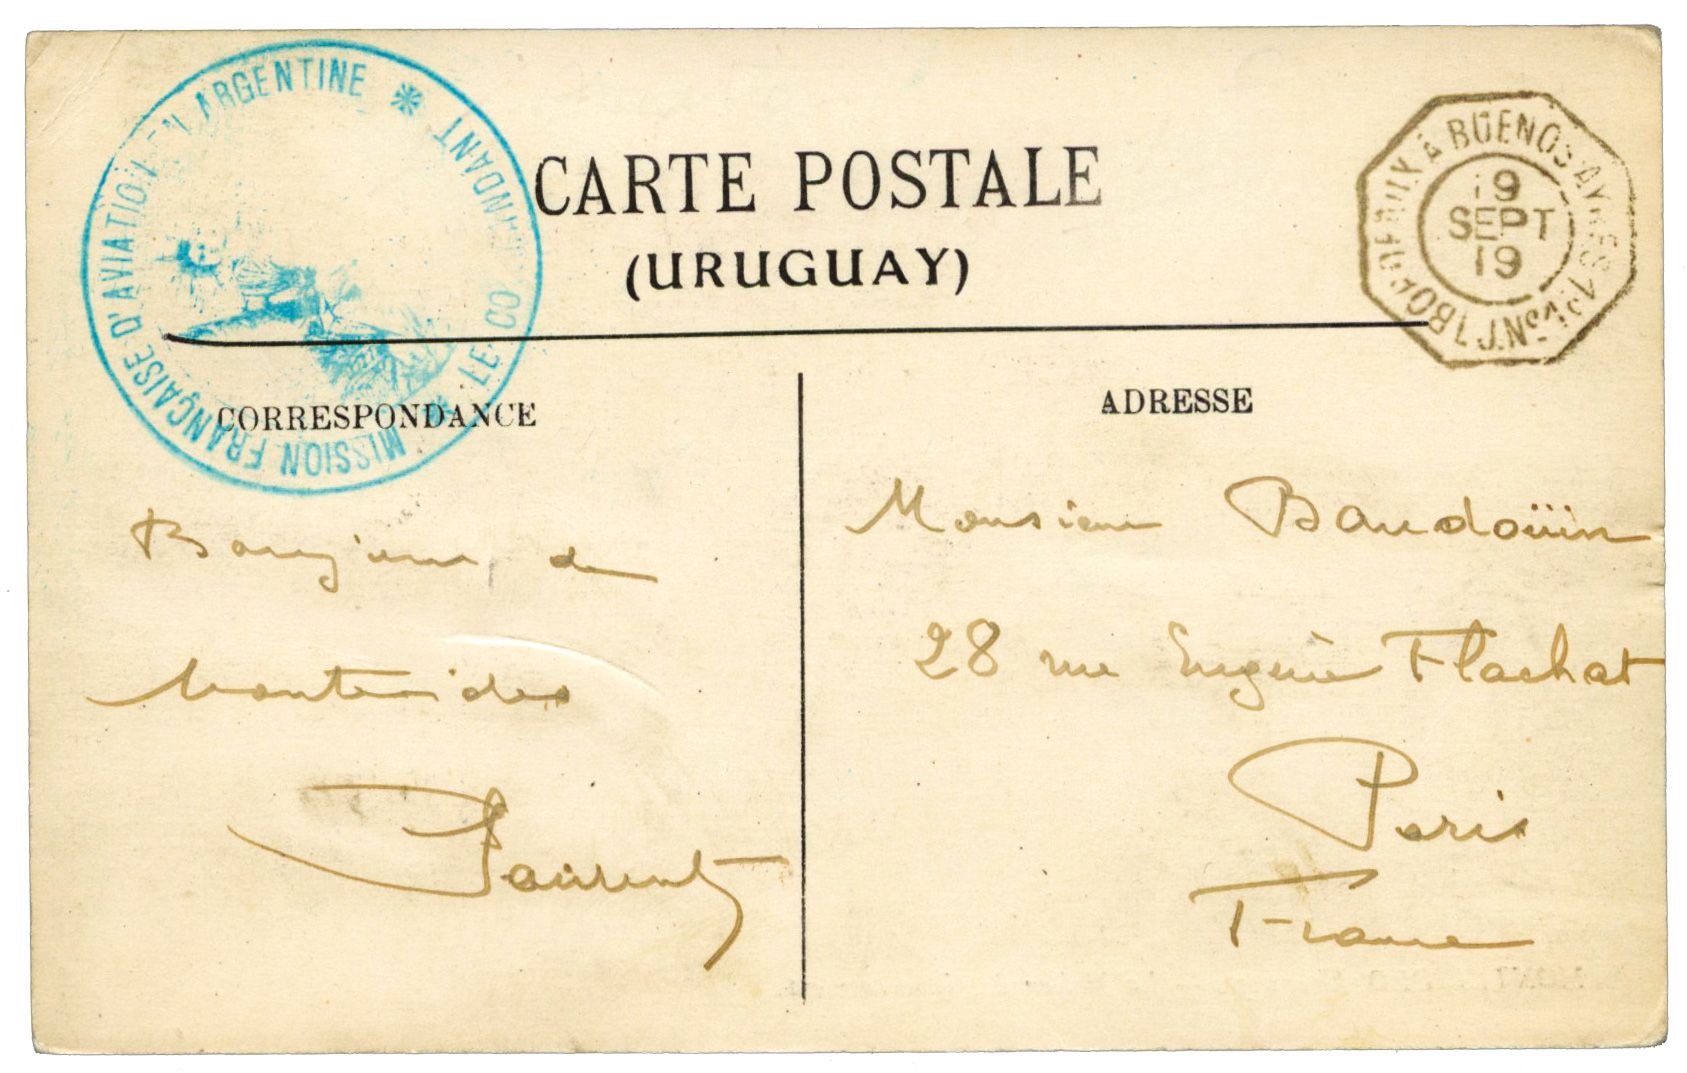 MISSION FRANÇAISE D'AVIATION EN ARGENTINE * LE COMMANDANT *
CARTE POSTALE
(URUGUAY)
BORDEAUX A BUENOS-AYRES 1º L.J.Nº
19
SEPT
19
CORRESPONDANCE
ADRESSE
Bonjour de
Montevideo
Monsieur Baudoüin
28 rue Eugène Flachat
Paris
France